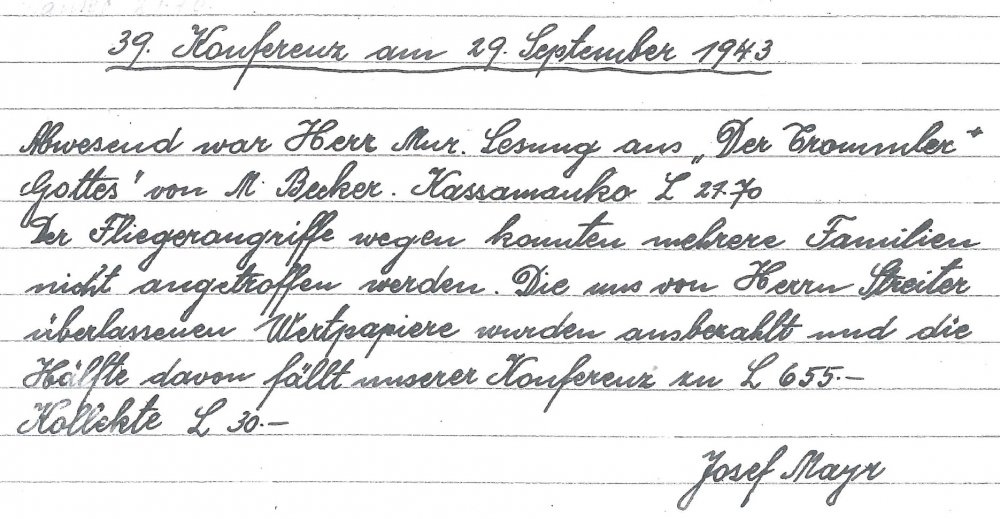 39. Konferenz am 29. September 1943
Abwesend war Herr Mur. Lesung aus „Der Trommler
Gottes" von M. Becker. Kassamanko L 27.70
Der Fliegerangriffe wegen konnten mehrere Familien
nicht angetroffen werden. Die uns von Herrn Streiter
überlassenen Wertpapiere wurden ausbezahlt und die
Hälfte davon fällt unserer Konferenz zu L 655.–
Kollekte L 30.–
Josef Mayr